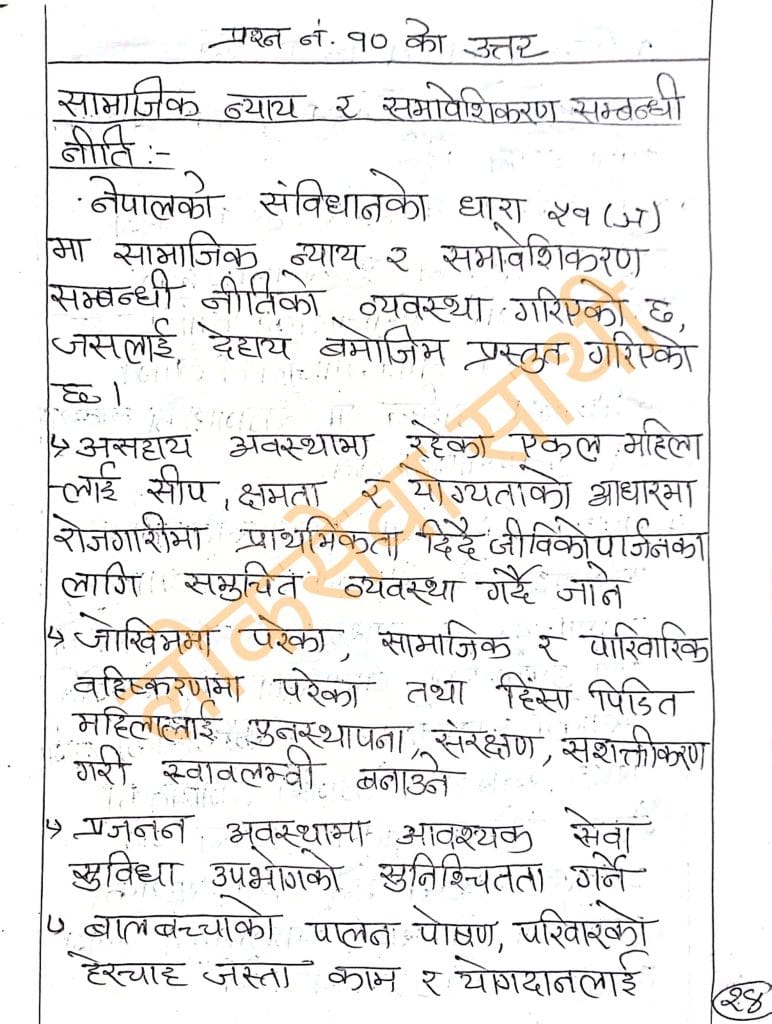 प्रश्न नं. १० को उत्तर
सामाजिक न्याय र समावेशिकरण सम्बन्धी
नीति :-
नेपालको संविधानको धारा ५१ (ञ)
मा सामाजिक न्याय र समावेशिकरण
सम्बन्धी नीतिको व्यवस्था गरिएको छ,
जसलाई देहाय बमोजिम प्रस्तुत गरिएको
छ।
↳ असहाय अवस्थामा रहेका एकल महिला
-लाई सीप, क्षमता र योग्यताको आधारमा
रोजगारीमा प्राथमिकता दिदै जीविकोपार्जनका
लागि समुचित व्यवस्था गर्दै जाने
↳ जोखिममा परेका, सामाजिक र पारिवारिक
वहिष्करणमा परेका तथा हिंसा पिडित
महिलालाई पुनस्थापना, संरक्षण, सशक्तीकरण
गरी स्वावलम्वी बनाउने
↳ प्रजनन अवस्थामा आवश्यक सेवा
सुविधा उपभोगको सुनिश्चितता गर्ने
↳ बालबच्चाको पालन पोषण, परिवारको
हेरचाह जस्ता काम र योगदानलाई
२४
लोकसेवा साथी